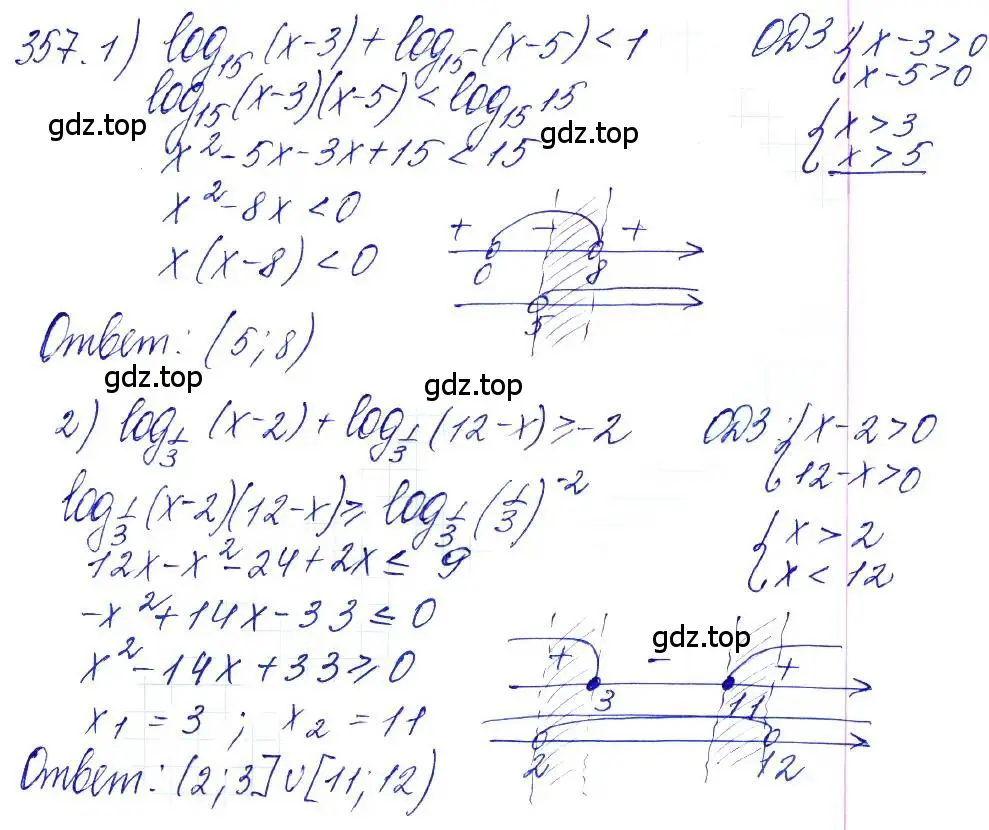 357. 1) log₁₅(x-3) + log₁₅(x-5) < 1 ОДЗ { x-3>0
x-5>0
log₁₅(x-3)(x-5) < log₁₅15
gdz.top gdz.top
{ x>3
x>5
x²-5x-3x+15 < 15
x²-8x < 0
+ - +
x(x-8) < 0
0 8
5
Ответ: (5; 8)
gdz.top gdz.top
2) log_{1/3}(x-2) + log_{1/3}(12-x) ≥ -2 ОДЗ: { x-2>0
12-x>0
log_{1/3}(x-2)(12-x) ≥ log_{1/3}(1/3)^{-2}
{ x > 2
x < 12
12x-x²-24+2x ≤ 9
-x²+14x-33 ≤ 0
gdz.top
x²-14x+33 ≥ 0
+ - +
3 11
x₁ = 3 ; x₂ = 11
2 12
Ответ: (2; 3]∪[11; 12)